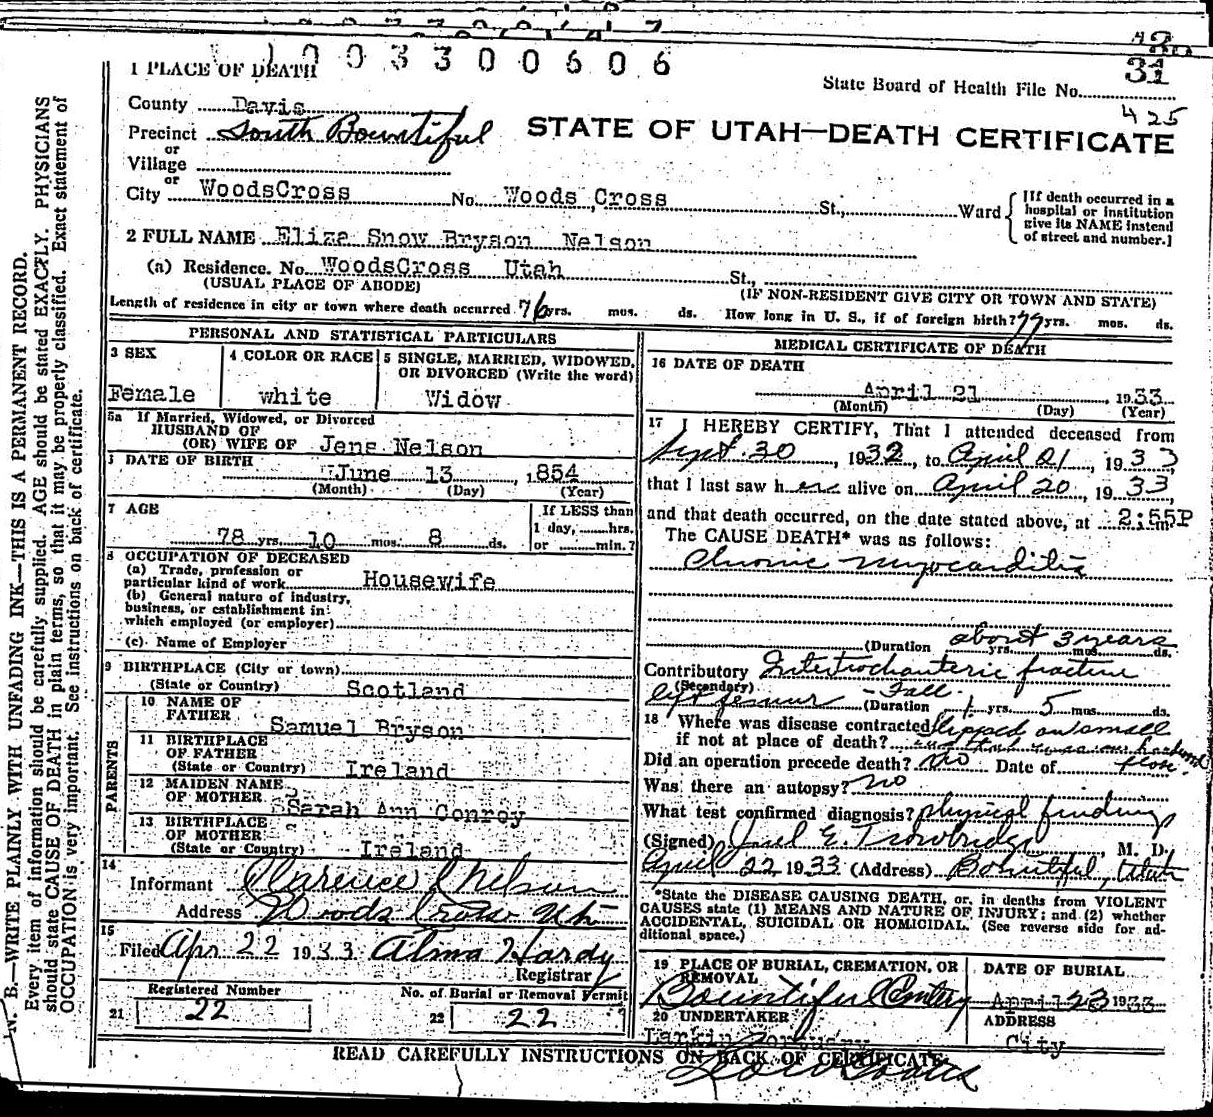 1003300606
31
State Board of Health File No.
425
1 PLACE OF DEATH
County Davis
Precinct South Bountiful
or
Village
or
City WoodsCross No. Woods Cross St., Ward
[If death occurred in a hospital or institution give its NAME instead of street and number.]
STATE OF UTAH—DEATH CERTIFICATE
2 FULL NAME Eliza Snow Bryson Nelson
(a) Residence. No. WoodsCross Utah St.,
(USUAL PLACE OF ABODE) (IF NON-RESIDENT GIVE CITY OR TOWN AND STATE)
Length of residence in city or town where death occurred 76 yrs. mos. ds. How long in U. S., if of foreign birth? 77 yrs. mos. ds.
PERSONAL AND STATISTICAL PARTICULARS
3 SEX
Female
4 COLOR OR RACE
white
5 SINGLE, MARRIED, WIDOWED, OR DIVORCED (Write the word)
Widow
5a If Married, Widowed, or Divorced
HUSBAND OF
(OR) WIFE OF Jens Nelson
DATE OF BIRTH
June 13, 1854
(Month) (Day) (Year)
7 AGE
78 yrs. 10 mos. 8 ds.
If LESS than
1 day, hrs.
or min.?
8 OCCUPATION OF DECEASED
(a) Trade, profession or
particular kind of work Housewife
(b) General nature of industry,
business, or establishment in
which employed (or employer)
(c) Name of Employer
9 BIRTHPLACE (City or town)
(State or Country) Scotland
PARENTS
10 NAME OF
FATHER Samuel Bryson
11 BIRTHPLACE
OF FATHER
(State or Country) Ireland
12 MAIDEN NAME
OF MOTHER Sarah Ann Conroy
13 BIRTHPLACE
OF MOTHER
(State or Country) Ireland
14
Informant Clarence Nelson
Address Woods Cross Ut
15
Filed Apr 22 1933 Alma Hardy
Registrar
Registered Number
21 22
No. of Burial or Removal Permit
22 22
MEDICAL CERTIFICATE OF DEATH
16 DATE OF DEATH
April 21 1933
(Month) (Day) (Year)
17 I HEREBY CERTIFY, That I attended deceased from
Sept. 30, 1932, to April 21, 1933
that I last saw her alive on April 20, 1933,
and that death occurred, on the date stated above, at 2:55P m.
The CAUSE DEATH* was as follows:
Chronic myocarditis
(Duration about 3 years yrs. mos. ds.
Contributory Intertrochanteric fracture
(Secondary) left femur - Fall.
(Duration 1 yrs. 5 mos. ds.
18 Where was disease contracted slipped on small
if not at place of death? floor.
Did an operation precede death? No Date of
Was there an autopsy? no
What test confirmed diagnosis? physical findings
(Signed) E. Trowbridge, M. D.
April 22 1933 (Address) Bountiful, Utah
*State the DISEASE CAUSING DEATH, or, in deaths from VIOLENT
CAUSES state (1) MEANS AND NATURE OF INJURY; and (2) whether
ACCIDENTAL, SUICIDAL OR HOMICIDAL. (See reverse side for ad-
ditional space.)
19 PLACE OF BURIAL, CREMATION, OR
REMOVAL
Bountiful Cemetery
DATE OF BURIAL
April 23 1933
20 UNDERTAKER
Larkin Mortuary
ADDRESS
City
READ CAREFULLY INSTRUCTIONS ON BACK OF CERTIFICATE
N. B.—WRITE PLAINLY WITH UNFADING INK—THIS IS A PERMANENT RECORD.
Every item of information should be carefully supplied. AGE should be stated EXACLY. PHYSICIANS
should state CAUSE OF DEATH in plain terms, so that it may be properly classified. Exact statement of
OCCUPATION is very important. See instructions on back of certificate.